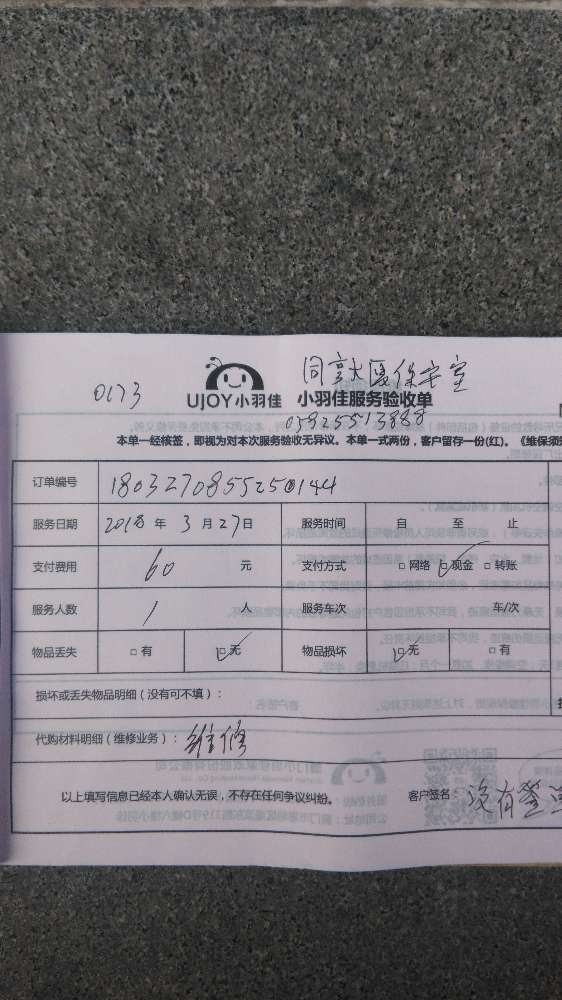 0173
UJOY小羽佳
同 大厦保安室
小羽佳服务验收单
05925513888
本单一经核签，即视为对本次服务验收无异议。本单一式两份，客户留存一份(红)。《维保须
订单编号 1803270855250144
服务日期 2018 年 3 月 27 日 服务时间 自 至 止
支付费用 60 元 支付方式 □ 网络 ☑ 现金 □ 转账
服务人数 1 人 服务车次 车/次
物品丢失 □ 有 ☑ 无 物品损坏 ☑ 无 □ 有
损坏或丢失物品明细（没有可不填）：
代购材料明细（维修业务）：维修
以上填写信息已经本人确认无误，不存在任何争议纠纷。 客户签名：没有